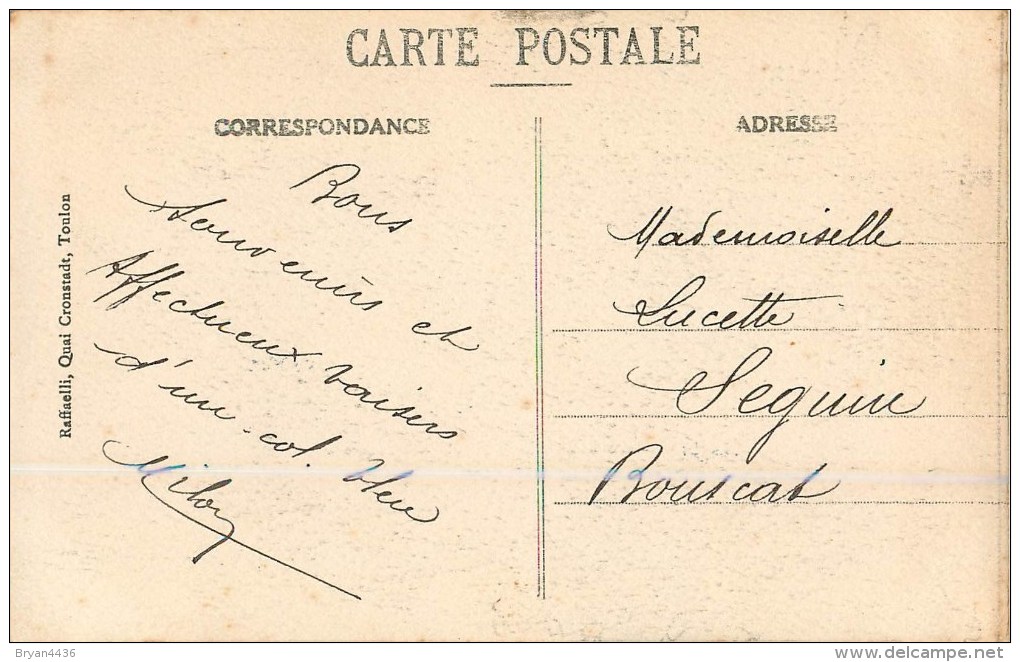 CARTE POSTALE
CORRESPONDANCE
ADRESSE
Raffaelli, Quai Cronstadt, Toulon
Bons
souvenirs et
Affectueux baisers
d'un col. bleu
Mademoiselle
Lucette
Seguin
Bouscat
Bryan4436
www.delcampe.net